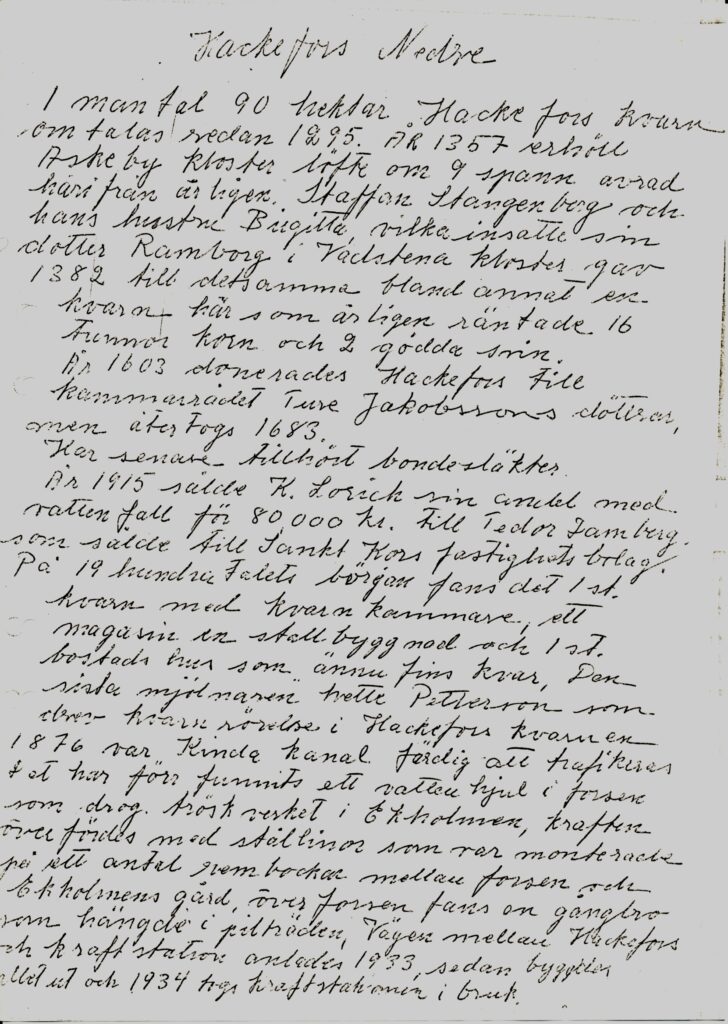 Hackefors Nedre
1 mantal 90 hektar Hackefors kvarn
omtalas redan 1295. År 1357 erhöll
Askeby kloster löfte om 9 spann avrad
härifrån årligen. Staffan Stangenberg och
hans hustru Birgitta, vilka insatte sin
dotter Ramborg i Vadstena kloster gav
1382 till detsamma bland annat en
kvarn här som årligen räntade 16
tunnor korn och 2 gödda svin.
År 1603 donerades Hackefors till
kammarrådet Ture Jakobssons döttrar,
men återtogs 1683.
Har senare tillhört bondesläkter.
År 1915 sålde K. Lorich sin andel med
vattenfall för 80,000 kr. till Tedor Jamberg.
som sålde till Sankt Kors fastighets bolag.
På 19 hundratalets börgan fans det 1 st.
kvarn med kvarnkammare, ett
magasin en stallbyggnad och 1 st.
bostads hus som ännu fins kvar, Den
sista mjölnaren hette Petterson som
drev kvarn rörelse i Hackefors kvarnen
1876 var Kinda kanal färdig att trafikeras
det har förr funnits ett vattenhjul i forsen
som drog tröskverket i Ekholmen, kraften
överfördes med stållinor som var monterade
på ett antal rembockar mellan forsen och
Ekholmens gård, över forsen fans en gångbro
som hängde i pilträden, Vägen mellan Hackefors
och kraftstation anlades 1933, sedan byggdes
allet ut och 1934 togs kraftstationen i bruk.